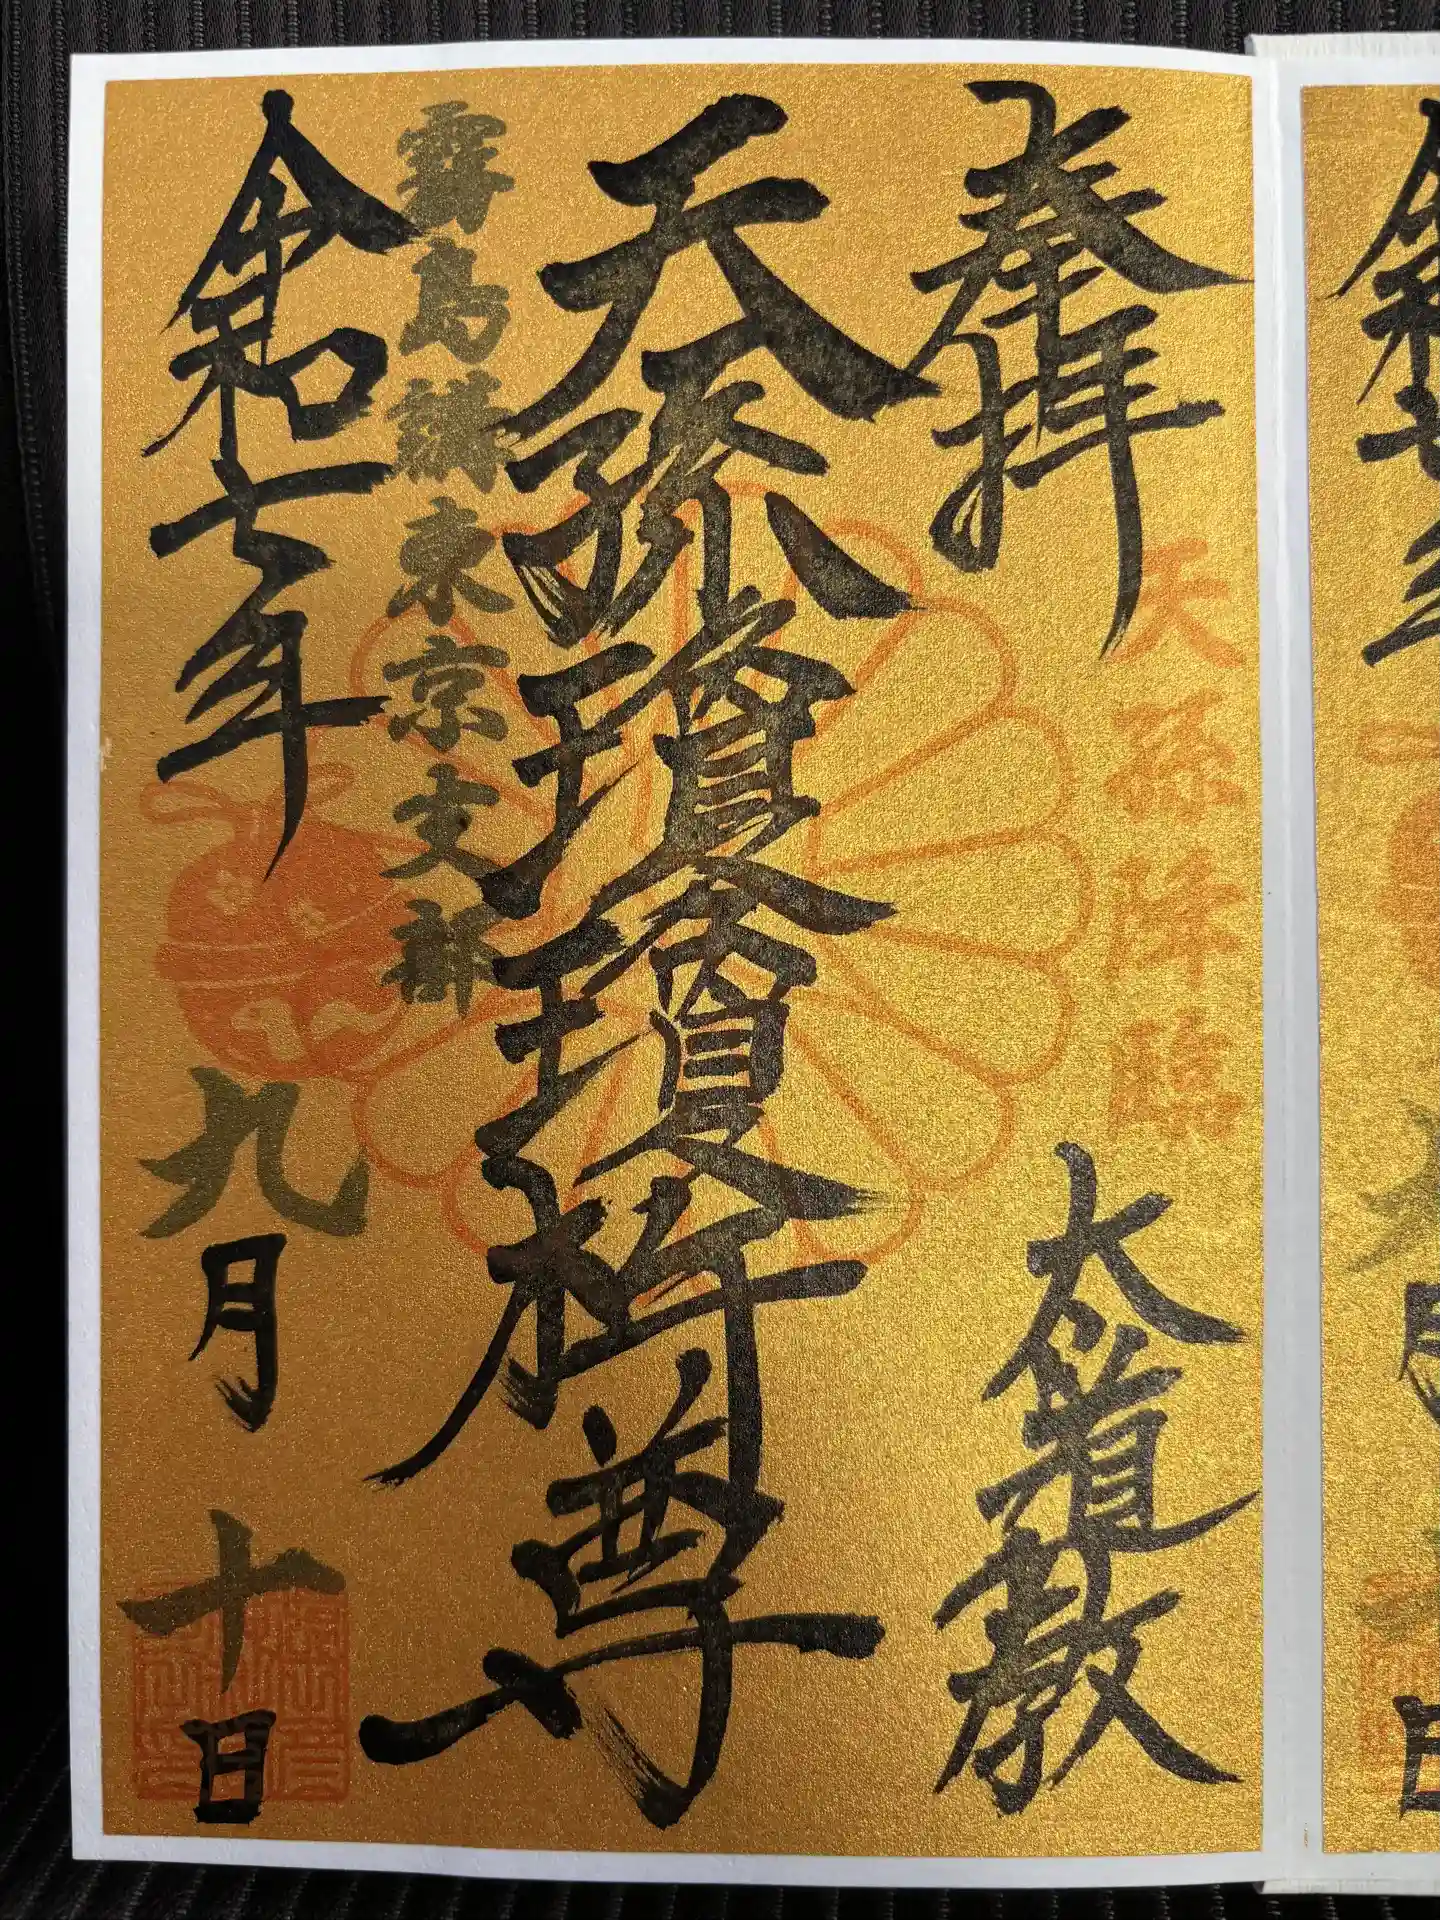 奉拝
天孫降臨
大道教
天孫瓊瓊杵尊
霧島講東京支部
令和七年九月十日